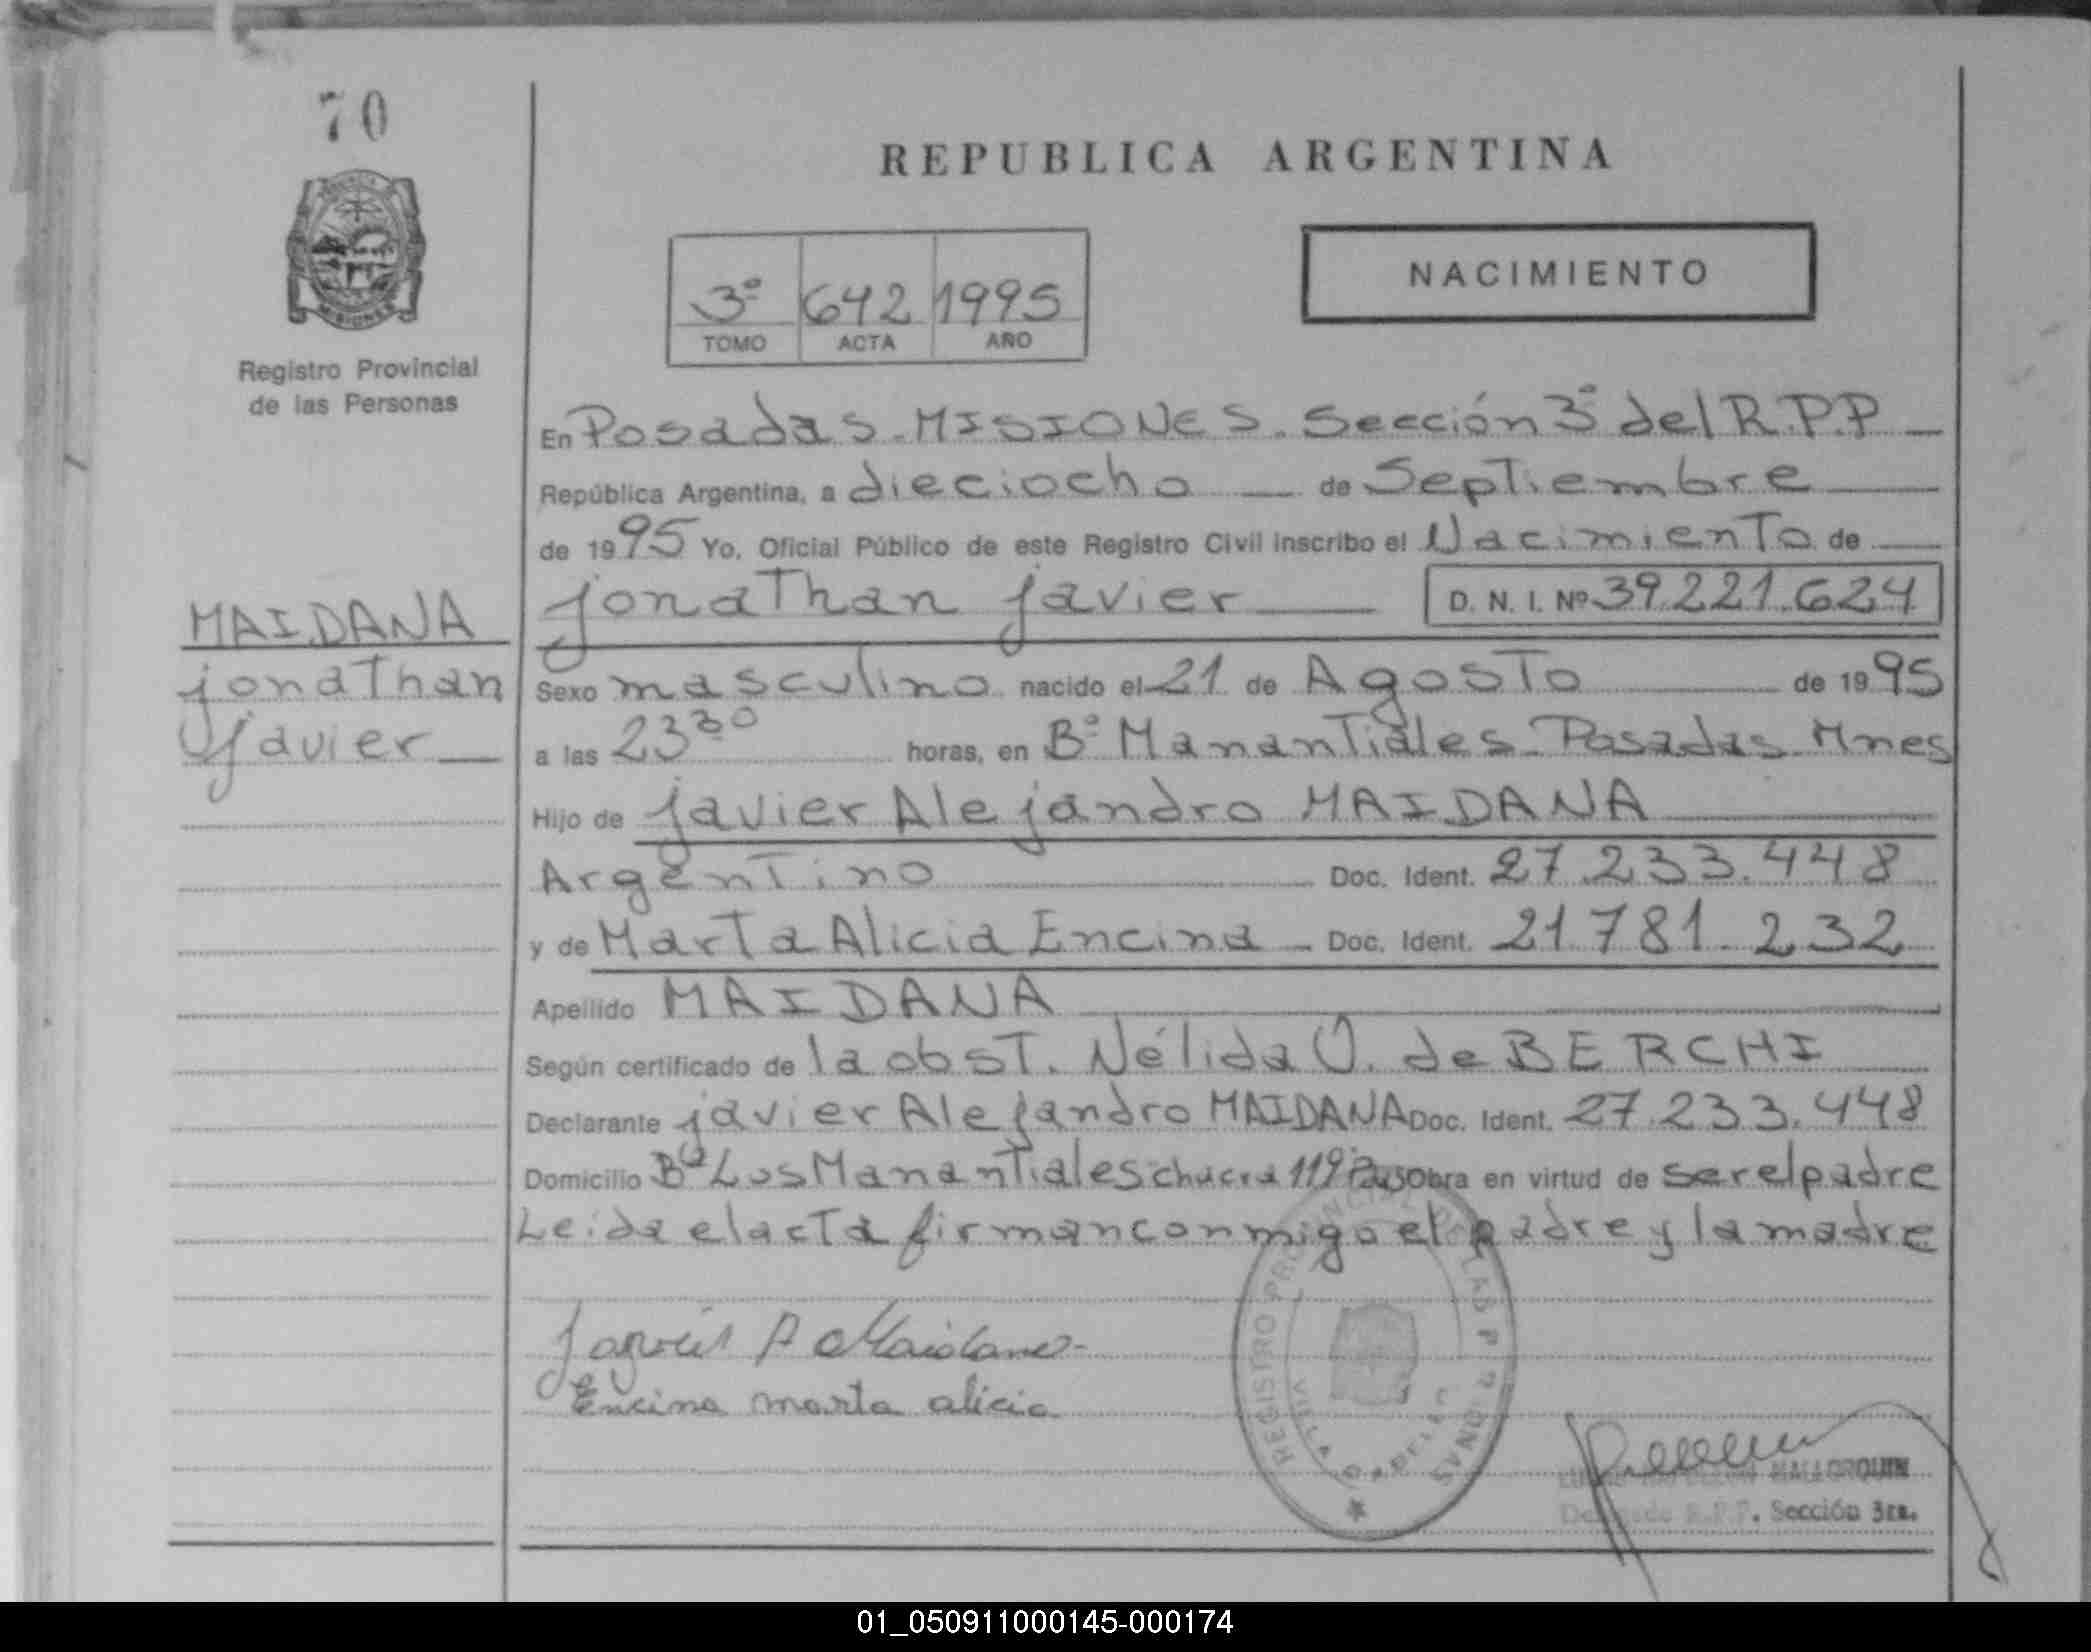 70
REPUBLICA ARGENTINA
NACIMIENTO
3º 642 1995
TOMO ACTA AÑO
MISIONES
Registro Provincial
de las Personas
En Posadas - MISIONES. Sección 3º del R.P.P
República Argentina, a dieciocho de Septiembre
de 1995 Yo, Oficial Público de este Registro Civil inscribo el Nacimiento de
Jonathan Javier D. N. I. Nº 39.221.624
MAIDANA
Jonathan
Javier
Sexo masculino nacido el 21 de Agosto de 1995
a las 23³⁰ horas, en Bº Manantiales - Posadas - Mnes
Hijo de Javier Alejandro MAIDANA
Argentino Doc. Ident. 27.233.448
y de Marta Alicia Encina - Doc. Ident. 21.781.232
Apellido MAIDANA
Según certificado de la obst. Nélida O. de BERCHI
Declarante Javier Alejandro MAIDANA Doc. Ident. 27.233.448
Domicilio Bº Los Manantiales chacra 119 obra en virtud de ser el padre
Leida el acta firman conmigo el padre y la madre
Javier A Maidana
Encina marta alicia
REGISTRO PROVINCIAL DE LAS PERSONAS
MALLORQUIN
Delegado R.P.P. Sección 3ra.
01_050911000145-000174